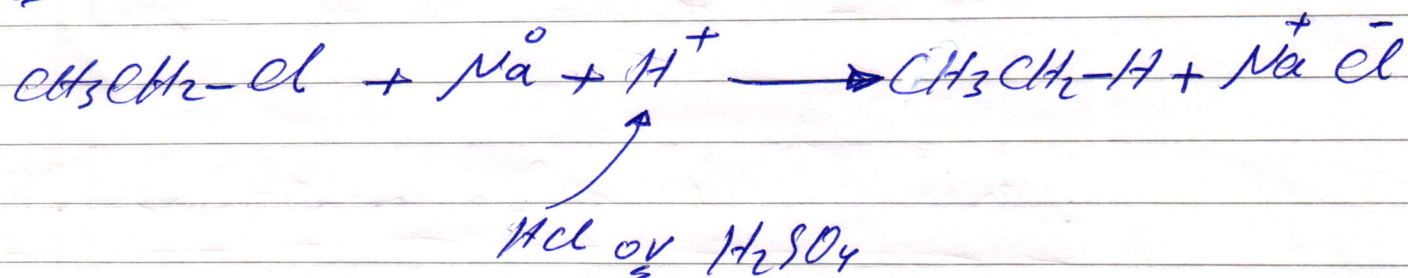 CH₃CH₂-Cl + Na⁰ + H⁺ ⟶ CH₃CH₂-H + Na⁺ Cl⁻
HCl or H₂SO₄